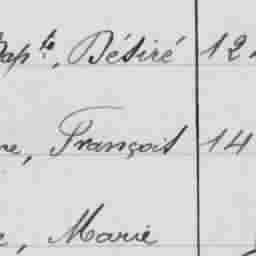 Bapte, Désiré 12
re, François 14
e, Marie